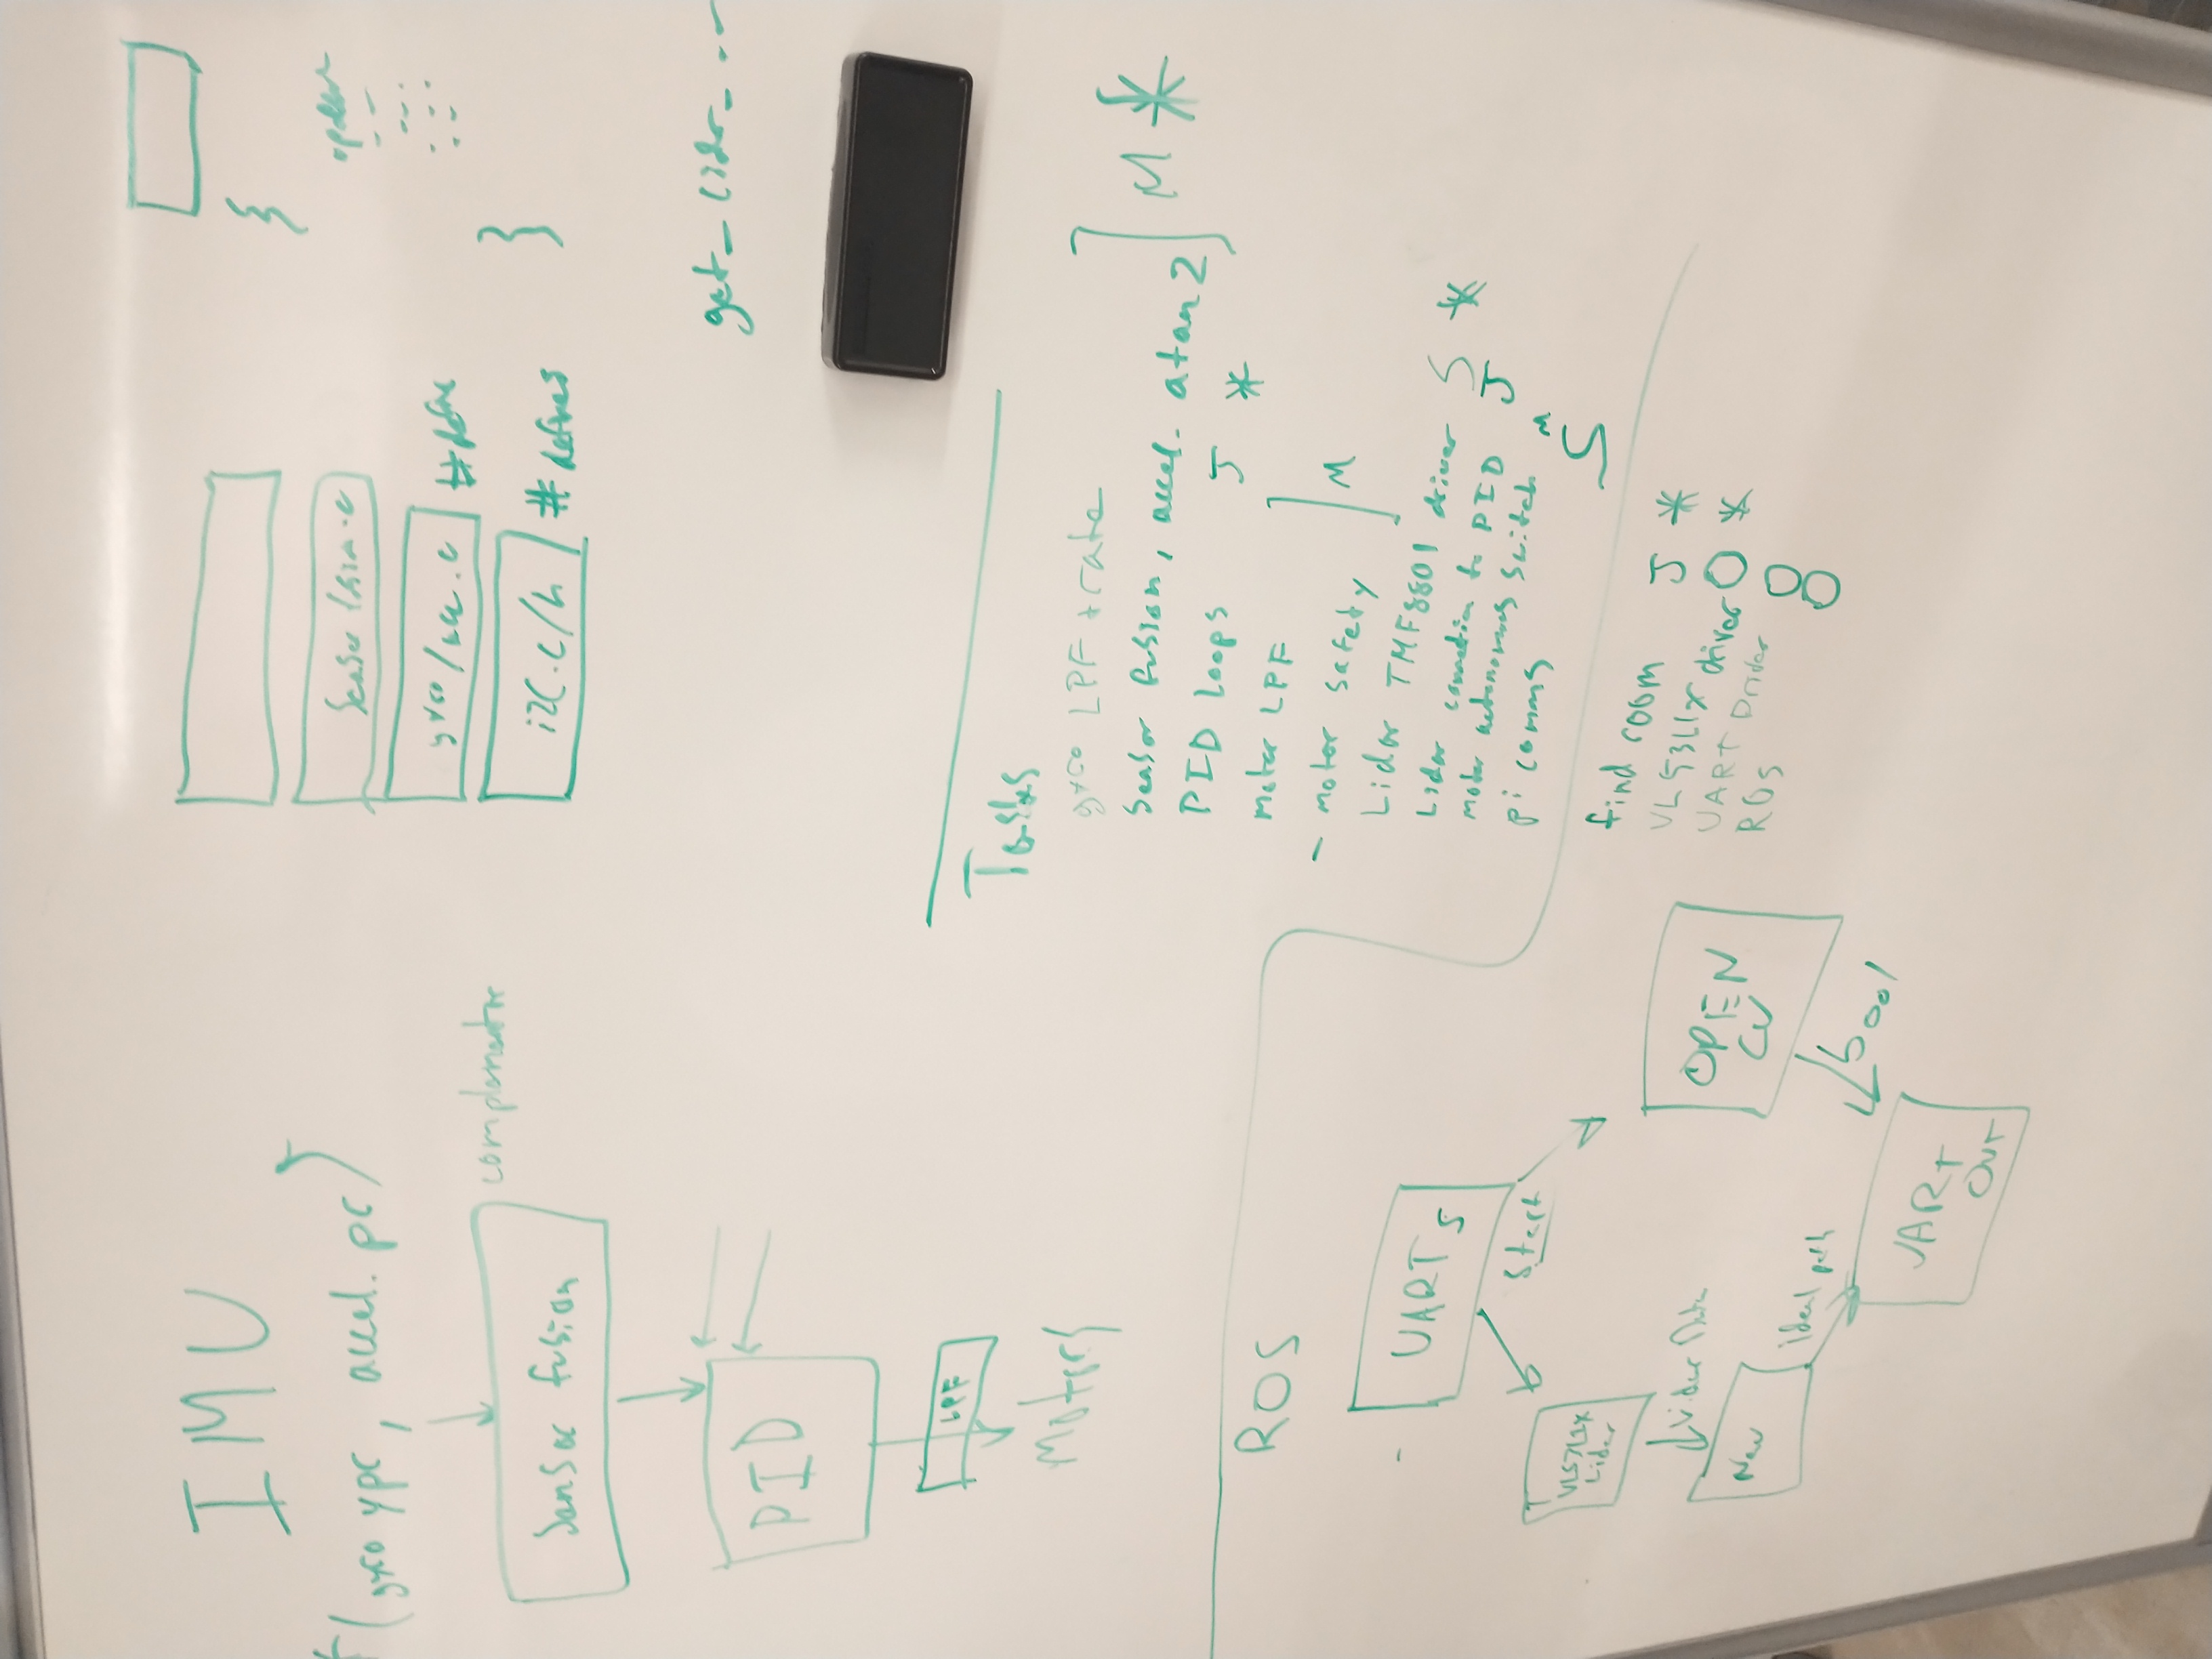 IMU
(gyro ypr, accel. pr)
Sensor fusion
PID
LPF
Motors
gyro/acc.c
#define
i2C.c/h
# defines
Tasks
gyro LPF + rate
Sensor fusion, accel. atan2
M *
PID Loops J *
motor LPF
- motor safety
M
Lidar TMF8801 driver S *
Lidar connection to PID J
motor autonomous switch M
pi comms S
find room J *
VL53L1x driver O *
UART Driver O
ROS O
ROS
UART
Start
Lidar
Lidar Data
Nav
ideal path
OPEN
CV
bool
UART
OUT